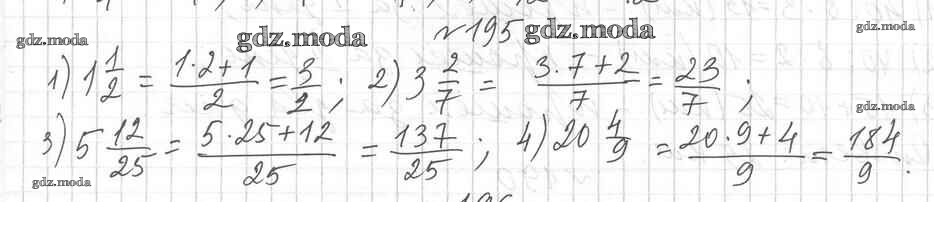 gdz.moda gdz.moda №195 gdz.moda gdz.moda
1) 1 1/2 = (1·2+1)/2 = 3/2 ; 2) 3 2/7 = (3·7+2)/7 = 23/7 ;
gdz.moda
3) 5 12/25 = (5·25+12)/25 = 137/25 ; 4) 20 4/9 = (20·9+4)/9 = 184/9 .
gdz.moda